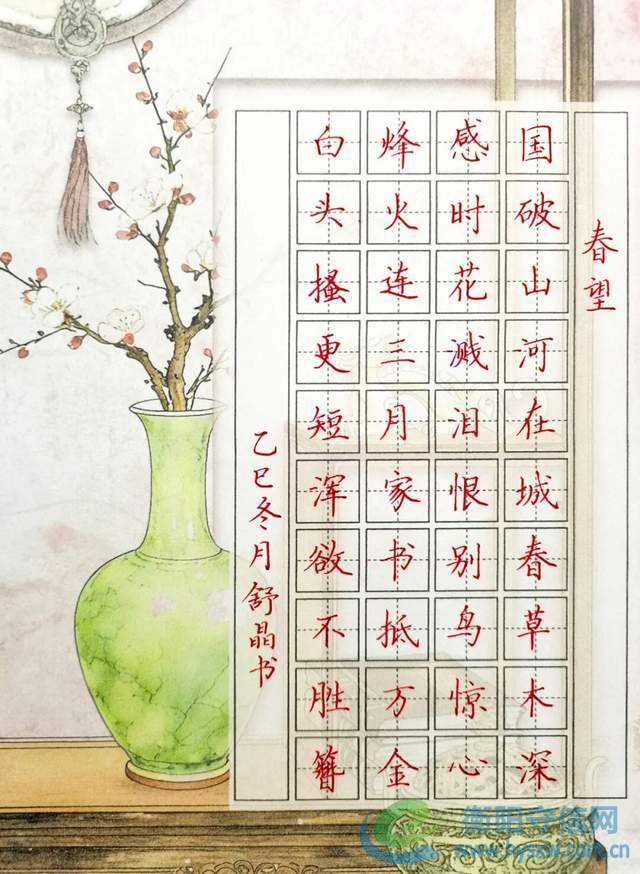 春望
国破山河在城春草木深
感时花溅泪恨别鸟惊心
烽火连三月家书抵万金
白头搔更短浑欲不胜簪
乙巳冬月舒晶书
衡阳守信网
www.hysxw.com.cn